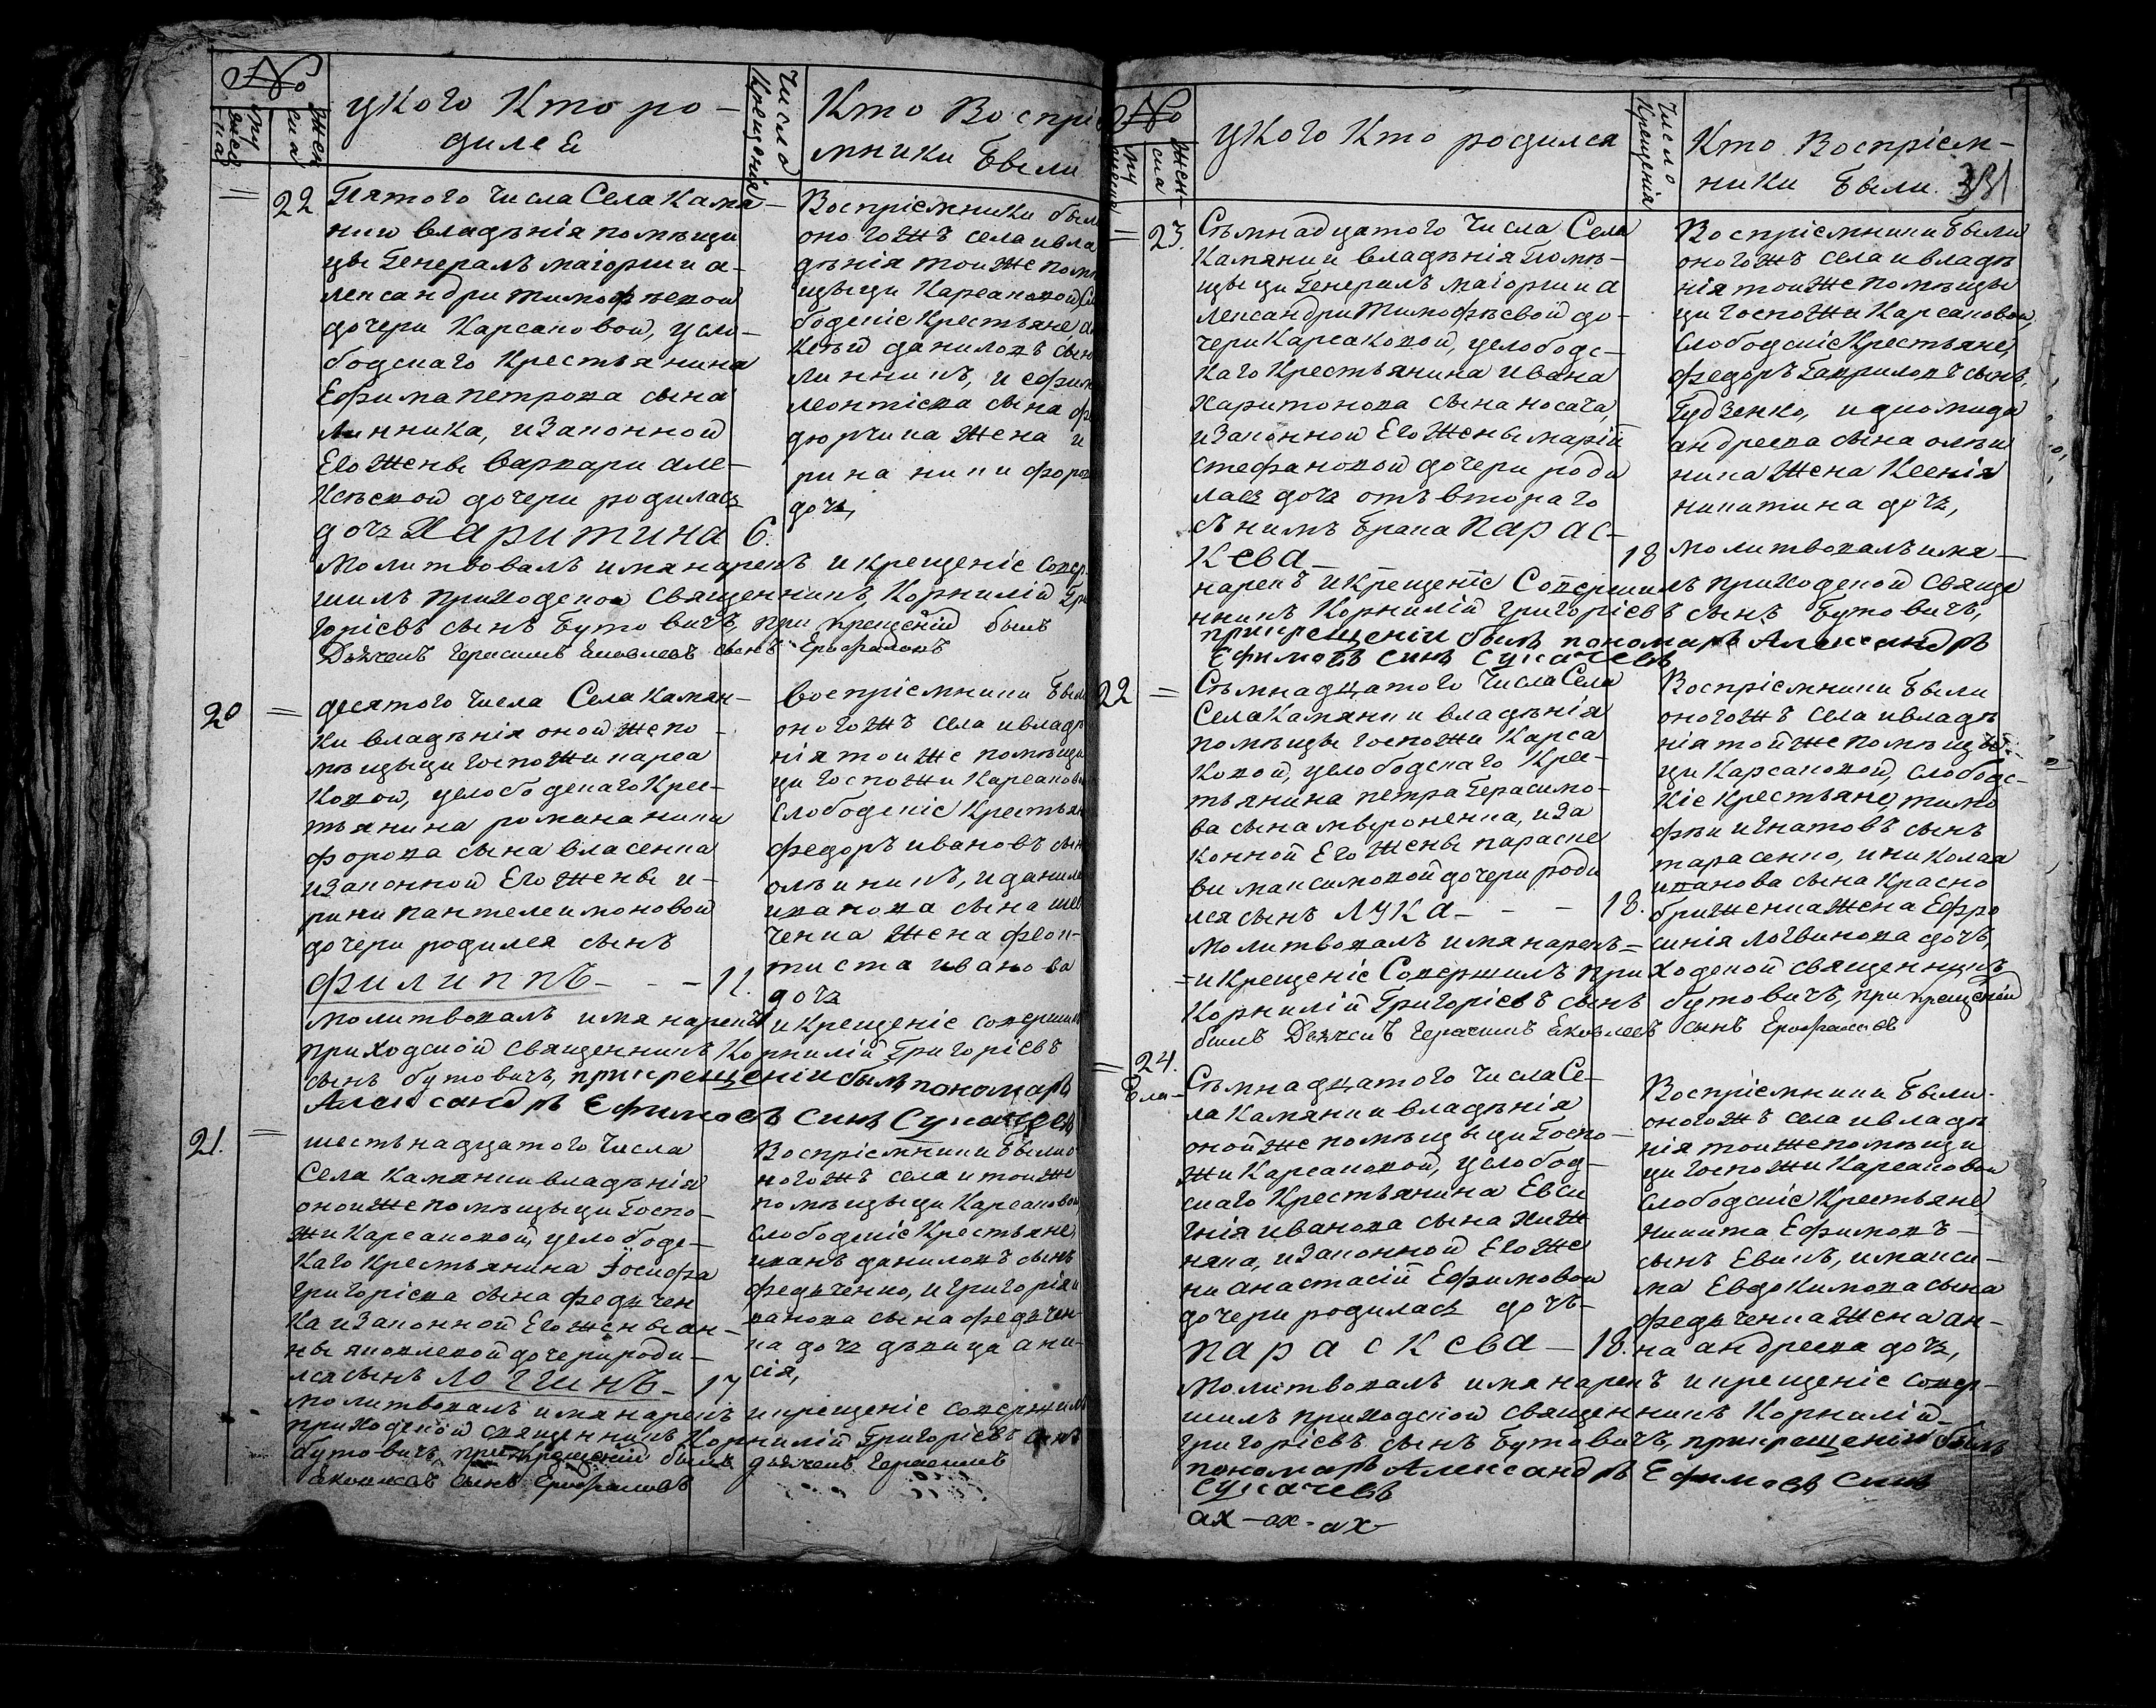 №
му
жеска
женска
у кого кто ро-
дилса
Число
Крещенія
Кто Воспріе
мники были
= 22 Пятого числа Села Камя-
нки владѣнія помѣщи
цы Генералъ маіорши а-
лександри тимофѣевой
дочери Карсаковой, усло-
бодскаго Крестьянина
Ефима петрова сына
линника, изаконной
Его жены варвари але-
ксѣевой дочери родилась
дочь Харитина 6.
Воспріемники был
оногожъ села ивла
дѣнія тоиже помѣ
щыци Карсаковой Сло
бодскіе Крестьяне
даниловъ сын
линникъ, и ефим
леонтіева сына
жена и
рина никифоров
дочь,
Молитвовалъ имянарекъ и крещеніе совер-
шилъ приходской Священникъ Корнилій Гри
горіевъ сынъ Бутовичъ, при крещеніи былъ
Дьячекъ Герасимъ Яковлевъ сынъ Ерофаловъ
20 = десятого числа Села Камян-
ки владѣнія оной же по-
мѣщыци госпожи карса
ковой, услободскаго Крес-
тьянина романа ники
форова сына власенка
изаконной Его жены и-
рини пантелеимоновой
дочери родился сынъ
филиппъ - - - 11.
воспріемники был
оногожъ села ивладѣ
нія тоиже помѣщи
ци госпожи Карсаково
Слободскіе Крестьян
федоръ ивановъ сын
олѣиникъ, иданила
иванова сына шев
ченка жена феок-
тиста иванова
дочь
молитвовалъ имянарекъ и крещеніе совершил
приходской священникъ Корнилій Григоріевъ
сынъ бутовичъ, прикрещеніи былъ пономарь
Александръ Ефимовъ синъ Сукачевъ
21. = шестьнадцатого Числа
Села Камянки владѣнія
оноиже помѣщыци Госпо-
жи Карсаковой, услободс-
каго Крестьянина Іосифа
григоріева сына федьчен
ка изаконной Его жены ан-
ны яковлевой дочери роди-
лся сынъ Логгинъ - 17
Воспріемники были о
ногожъ села и тоиже
помѣщыци Карсаковой
Слободскіе Крестьяне,
иванъ даниловъ сынъ
федьченко, и григорія и
ванова сына федьчен-
ка дочь дѣвица ани-
сія,
Молитвовалъ имянарекъ и крещеніе совершилъ
приходской священникъ Корнилій Григоріевъ сынъ
бутовичъ, при крещеніи былъ дьячекъ Герасимъ
Яковлевъ сынъ Ерофаловъ
№
му
жеска
жен-
ска
у кого кто родился
Число
Крещенія
Кто Воспріем-
ники были. 331
= 23. Сѣмнадцатого числа Села
Камянки владѣнія Помѣ-
щыци Генералъ маіорши а
лександри Тимофѣевой до-
чери Карсаковой, услободс-
каго Крестьянина ивана
харитонова сына носача,
изаконной Его жены маріи
стефановой дочери роди
лась дочь отъ второго
сънимъ брака Парас-
кева - 18
Воспріемники были
оногожъ села ивладѣ
нія тоиже помѣщы
ци госпожи Карсаковой,
Слободскіе Крестьяне,
федоръ Гавриловъ сынъ,
Гудзенко, и диомида
андреева сына олѣи
ника жена Ксенія
никитина дочь,
Молитвовалъ имя-
нарекъ и крещеніе Совершилъ приходской Священ
никъ Корнилій григоріевъ сынъ Бутовичъ,
прикрещеніи былъ пономарь Александръ
Ефимовъ синъ Сукачевъ
22 = Сѣмнадцатого Числа Села
Села Камянки владѣнія
помѣщы госпожи Карса
ковой, услободскаго Крес-
тьянина петра Герасимо-
ва сына мироненка, иза
конной Его жены параске
ви максимовой дочери роди
лся сынъ Лука - - - 18.
Воспріемники были
оногожъ села ивладѣ
нія тойже помѣщы-
ци Карсаковой, слободс-
кіе крестьяне, тимо
фѣи игнатовъ сынъ
тарасенко, и николая
иванова сына Красно
бриженка жена Ефро
синія логвинова дочь,
Молитвовалъ имянарекъ =
= и Крещеніе Совершилъ приходской священникъ
Корнилій Григоріевъ сынъ бутовичъ, при крещеніи
былъ Дьячекъ Герасимъ Яковлевъ сынъ Ерофаловъ
= 24. Сѣмнадцатого Числа Се-
ла Камянки владѣнія
онойже помѣщыци Госпо-
жи Карсаковой, услобод-
скаго Крестьянина Евси
гнія иванова сына хиж
няка, изаконной Его же
ни анастасіи Ефимовой
дочери родилась дочь-
параскева - 18.
Воспріемники были
оногожъ села ивладѣ
нія тоиже помѣщи
ци госпожи Карсаковой
слободскіе Крестьяне
никита Ефимовъ-
сынъ Евикъ, имакси-
ма Евдокимова сына
федьченка жена ан-
на андреева дочь,
Молитвовалъ имянарекъ и крещеніе совер-
шилъ приходской священникъ Корнилій
григоріевъ сынъ Бутовичъ, прикрещеніи былъ
пономарь Александръ Ефимовъ синъ
Сукачевъ
ах - ах - ах -